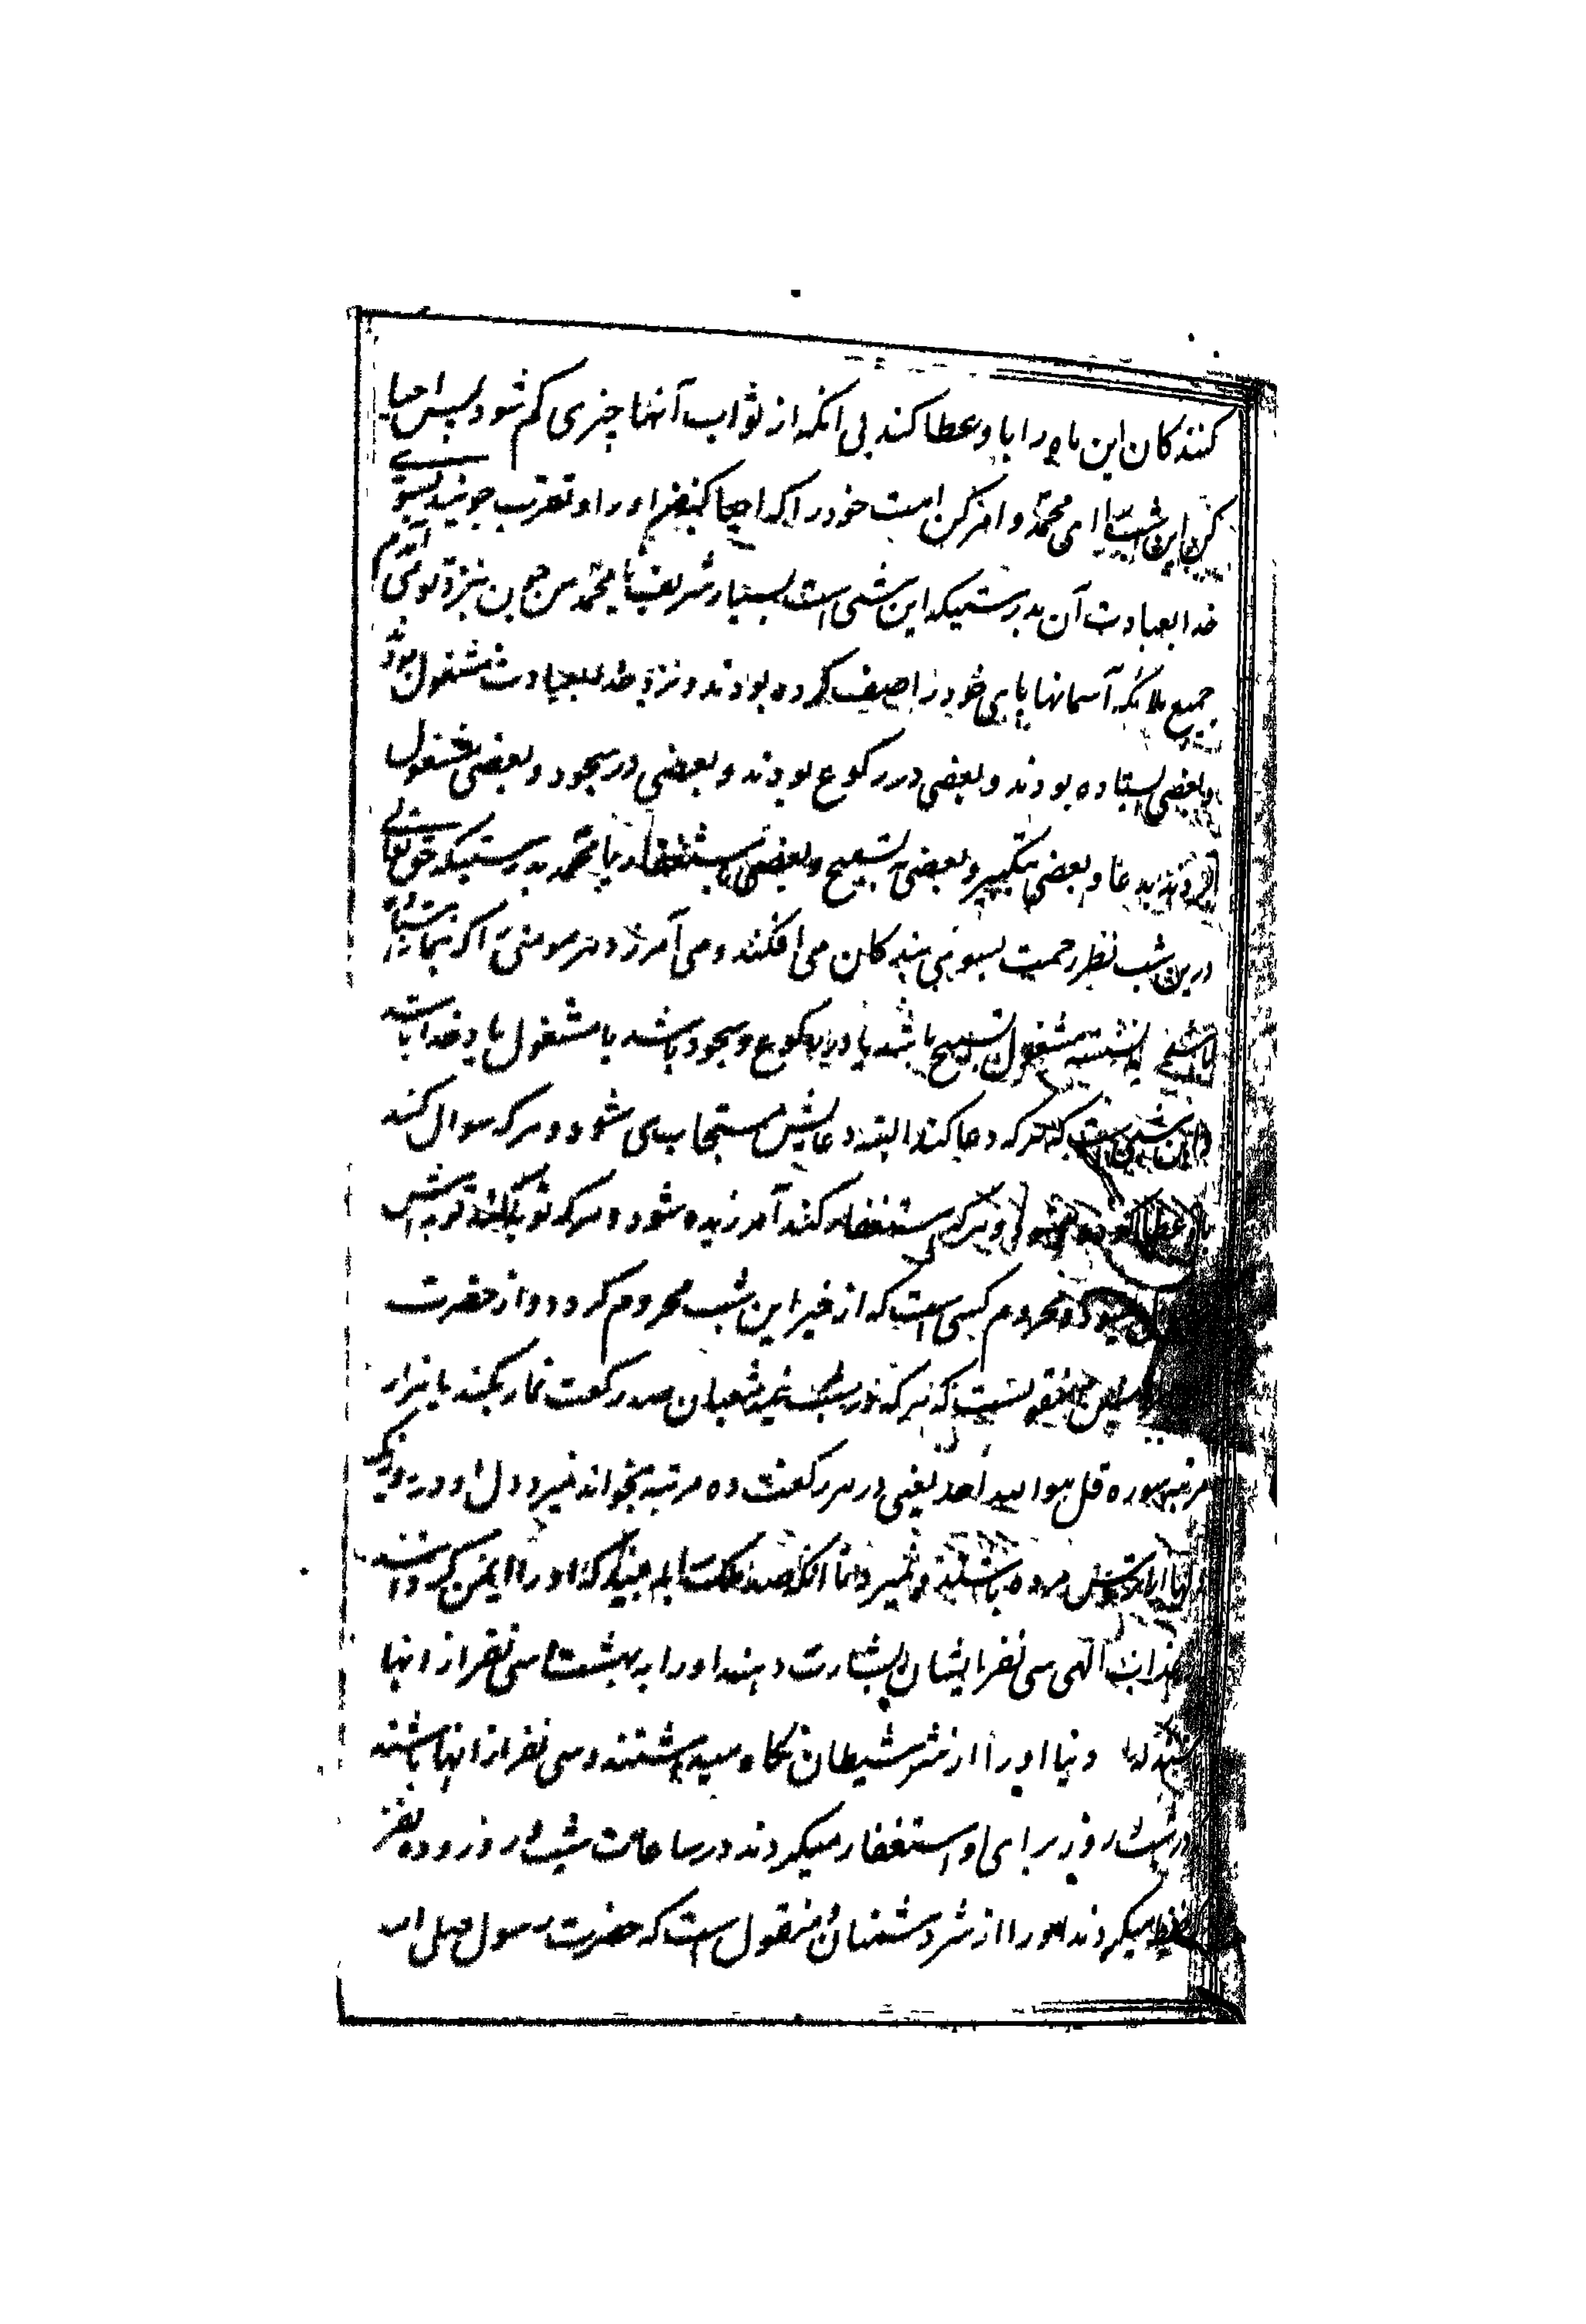 کنندکان این ماه را باو عطا کند بی آنکه از ثواب آنها چیزی کم شود پس احیا
کن این شب را ای محمد و امر کن امت خود را که احیا کنند او را و تقرب جویند بسوی
خدا بعبادت آن بدرستیکه این شبی است بسیار شریف یا محمد من چون بنزد تو می آمدم
جمیع ملائکه آسمانها پاهای خود را صف کرده بودند و نزد خدا بعبادت مشغول بودند
و بعضی ایستاده بودند و بعضی در رکوع بودند و بعضی در سجود و بعضی مشغول
بودند بدعا و بعضی بتکبیر و بعضی بتسبیح و بعضی باستغفار یا محمد بدرستیکه حق تعالی
درین شب نظر رحمت بسوی بندکان می افکند و می آمرزد هر مومنی را که بنماز ایستاده
باشد یا نشسته مشغول تسبیح باشد یا در رکوع و سجود باشد یا مشغول یاد خدا باشد
و این شبی است که هر که دعا کند البته دعایش مستجاب می شود و هر که سوال کند
باو عطا و هر که استغفار کند آمرزیده شود و هر که توبه کند توبه اش
میشود و محروم کسی است که از خیر این شب محروم کردد و از حضرت
منقولست که هر که در شب نیمه شعبان صد رکعت نماز بکند با هزار
مرتبه سوره قل هو الله احد یعنی در هر رکعت ده مرتبه بخواند نمیرد دل او در روزیکه
دلها مرده باشند و نمیرد تا آنکه صد ملک را به بیند که او را ایمن کردانند
عذاب الهی سی نفر ایشان بشارت دهند او را به بهشت و سی نفر از انها
دنیا او را از شر شیطان نکاه میداشتند و سی نفر از انها باشند
در شب و روز برای او استغفار میکردند در ساعات شب و روز و ده نفر
میکردند او را از شر دشمنان و منقول است که حضرت رسول صلی الله